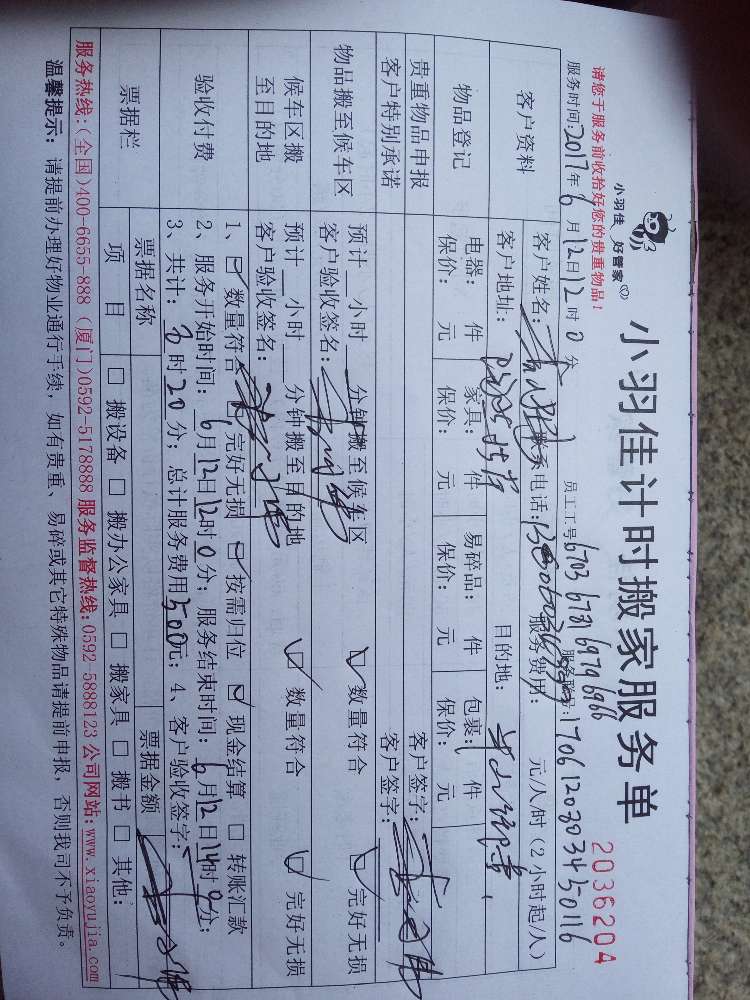 小羽佳 好管家
小羽佳计时搬家服务单
2036204
请您于服务前收拾好您的贵重物品！
员工工号6703 6731 6979 6966
服务时间:2017年6月12日12时0分
客户资料
客户姓名：
联系电话：
服务费用： 元/人/时（2小时起/人）
客户地址：
目的地：
物品登记
电器： 件 家具： 件 易碎品： 件 包裹： 件
保价： 元 保价： 元 保价： 元 保价： 元
贵重物品申报
客户签字：
客户特别承诺
客户签字：
物品搬至候车区
预计__小时__分钟搬至候车区 数量符合 完好无损
客户验收签名：
候车区搬至目的地
预计__小时__分钟搬至目的地 数量符合 完好无损
客户验收签名：
验收付费
1、☑数量符合 ☑完好无损 ☑按需归位 ☑现金结算 □转账汇款
2、服务开始时间：6月12日12时0分；服务结束时间：6月12日14时 分；
3、共计： 时20分；总计服务费用500元；4、客户验收签字：
票据栏
票据名称
票据金额
项 目 □搬设备 □搬办公家具 □搬家具 □搬书 □其他：
服务热线：（全国）400-6655-888（厦门）0592-5178888 服务监督热线：0592-5888123 公司网站：www.xiaoyujia.com
温馨提示：请提前办理好物业通行手续，如有贵重、易碎或其它特殊物品请提前申报，否则我司不予负责。